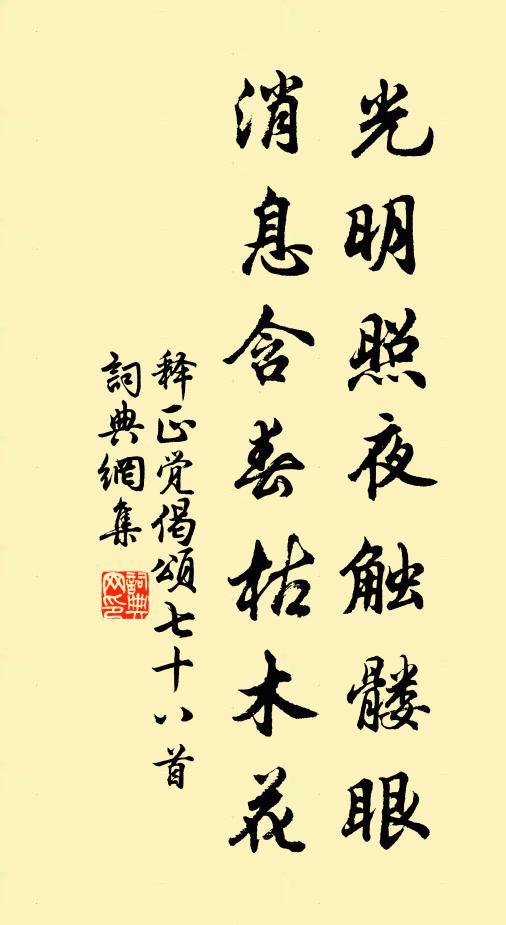 光明照夜触髅眼
消息含春枯木花
释正觉偈頌七十八首
詞典網集
詞典网印